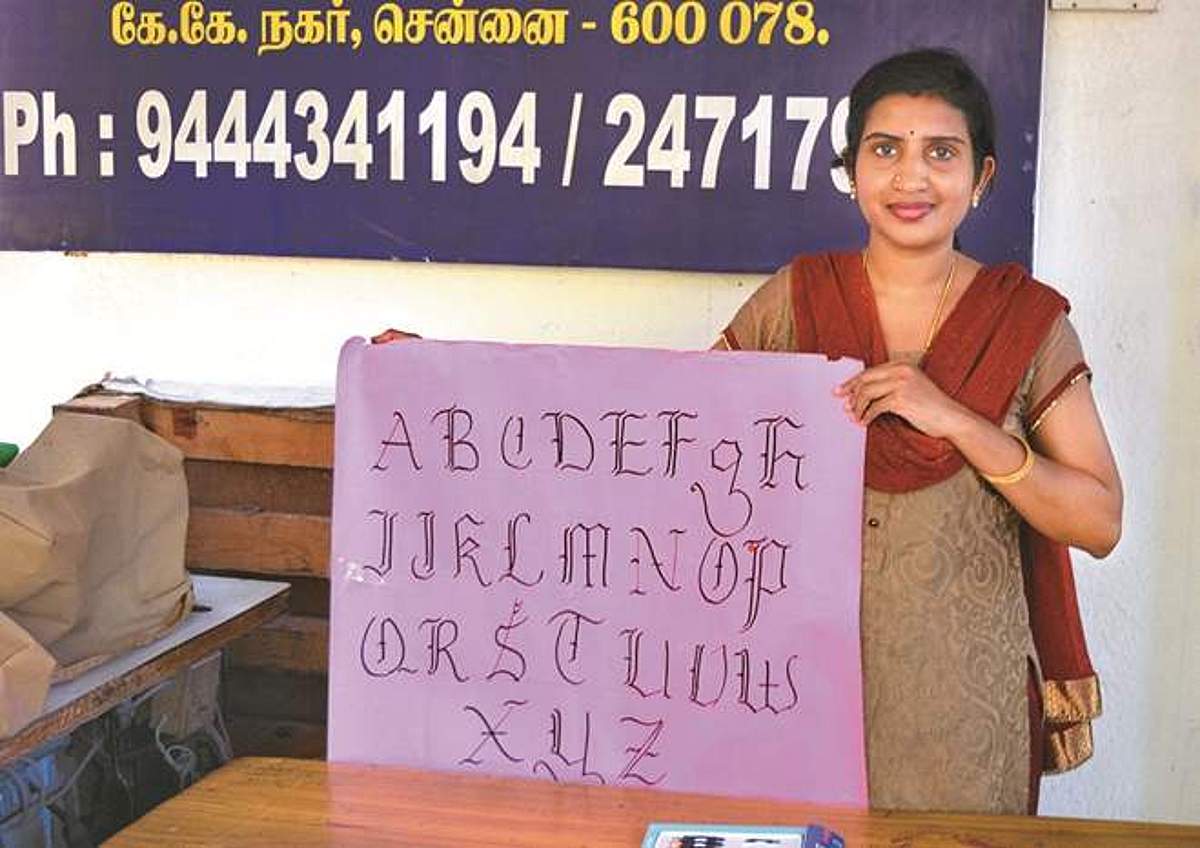 கே.கே. நகர், சென்னை - 600 078.
Ph : 9444341194 / 247179
A B C D E F g h
I J K L M N O P
Q R S T U V W
X Y Z